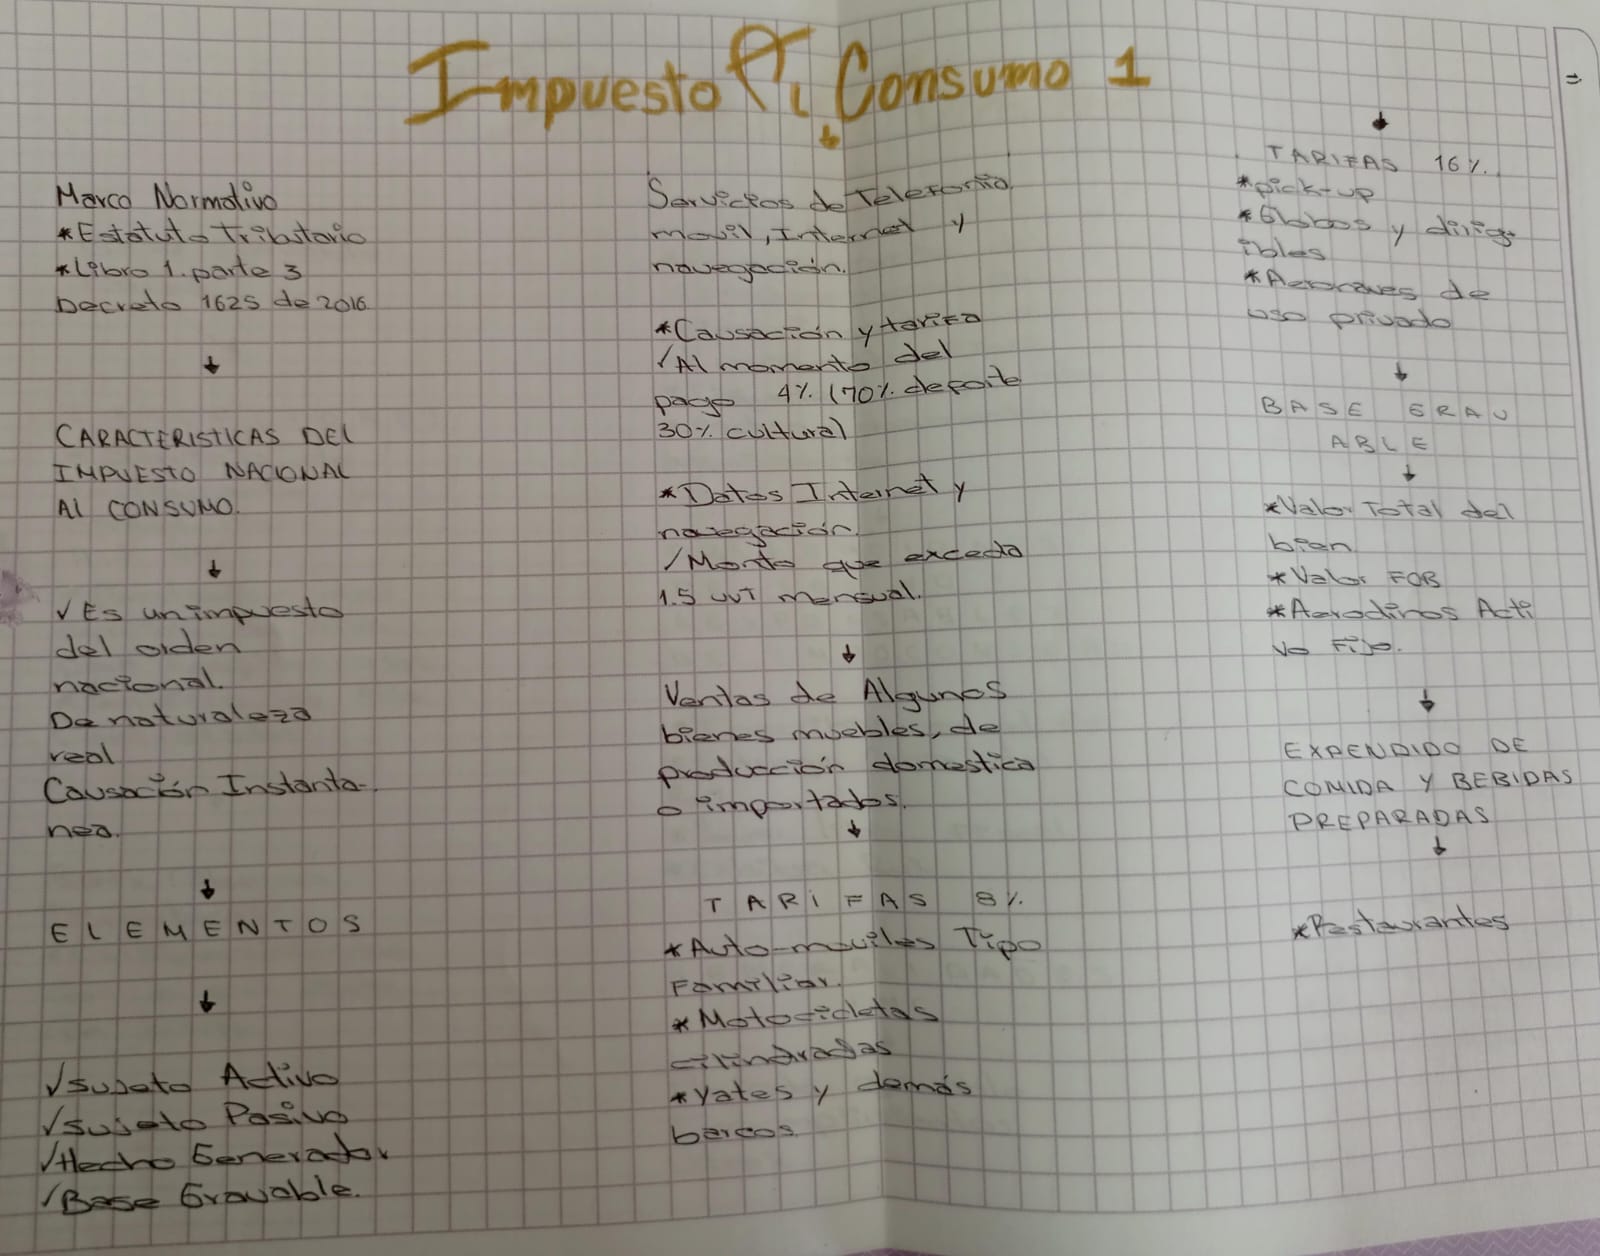 Impuesto Al Consumo 1
Marco Normativo
*Estatuto Tributario
*Libro 1. parte 3
Decreto 1625 de 2016
CARACTERISTICAS DEL
IMPUESTO NACIONAL
Al CONSUMO.
✓Es un impuesto
del orden
nacional.
De naturaleza
real
Causación Instanta-
nea.
ELEMENTOS
✓Sujeto Activo
✓Sujeto Pasivo
✓Hecho Generador
✓Base Gravable.
Servicios de Telefonía
movil, Internet y
navegación.
*Causación y tarifa
✓Al momento del
pago 4% (70% deporte
30% cultural)
*Datos Internet y
navegación.
✓Monto que exceda
1.5 UVT mensual.
Ventas de Algunos
bienes muebles, de
producción domestica
o importados.
TARIFAS 8%
*Auto-moviles Tipo
Familiar.
*Motocicletas
cilindradas
*Yates y demás
barcos
TARIFAS 16%.
*pick-up
*Globos y dirig-
ibles
*Aeronaves de
uso privado
BASE GRAV
ABLE
*Valor Total del
bien
*Valor FOB
*Aerodinos Acti
vo Fijo.
EXPENDIDO DE
COMIDA Y BEBIDAS
PREPARADAS
*Restaurantes